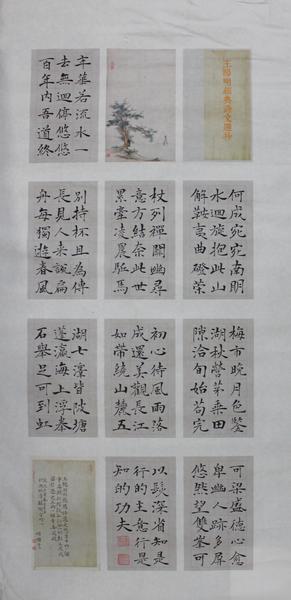 王陽明經典詩文選抄
年華若流水一
去無迴停悠悠
百年內吾道終
何成宛宛南明
水迴旋抱此山
解鞍夷曲磴榮
杖列禪關幽尋
意方結奈此世
累牽凌晨驅馬
別持杯且為傳
長見人來說扁
舟每獨遊春風
梅市晚月色鑒
湖秋營茅乘田
隙洽旬始苟完
初心待風雨落
成還美觀長江
如帶繞山麓五
湖七澤皆陂塘
蓬瀛海上浮拳
石舉足可到虹
可梁盛德心愈
卑幽人跡多屏
悠然望雙峯可
以鬆深省知是
行的主意行是
知的功夫